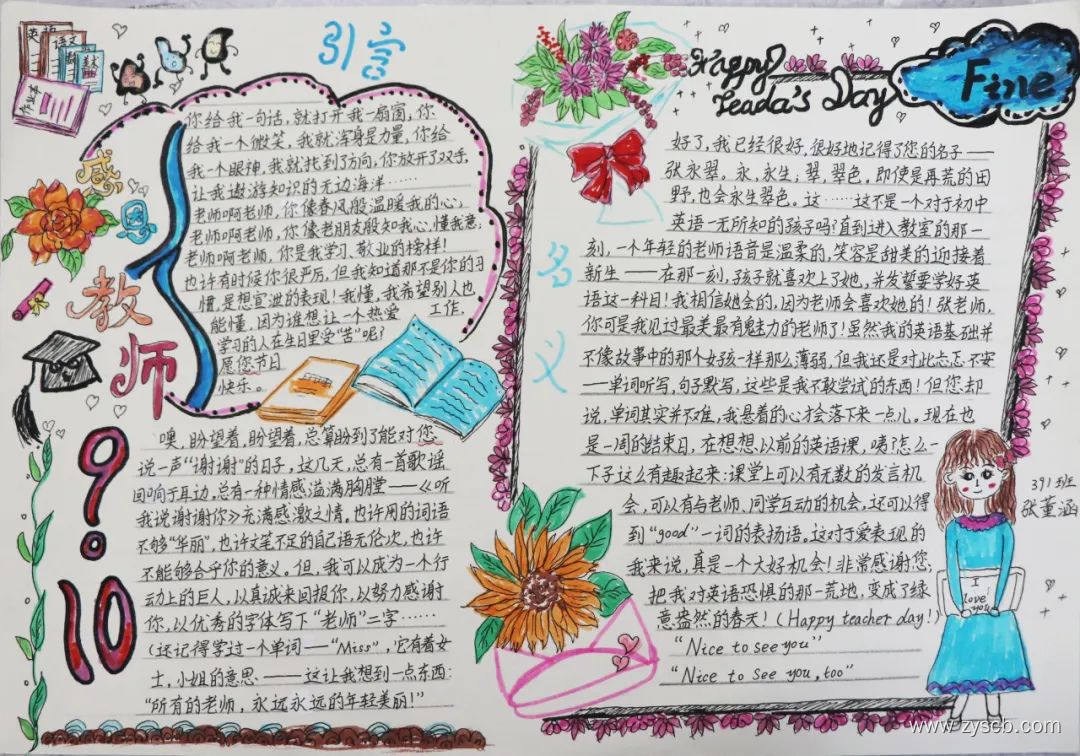 英语
语文
数
美术
作业本
引言
感
恩
教
师
9.10
你给我一句话,就打开我一扇窗,你
给我一个微笑,我就浑身是力量,你给
我一个眼神,我就找到了方向,你放开了双手,
让我遨游知识的无边海洋……
老师啊老师,你像春风般温暖我的心,
老师啊老师,你像老朋友般知我心,懂我意;
老师啊老师,你是我学习、敬业的榜样!
也许有时候你很严厉,但我知道那不是你的习
惯,是想宣泄的表现!我懂,我希望别人也
能懂,因为谁想让一个热爱工作,
学习的人在生日里受“苦”呢?
愿您节日
快乐。
噢,盼望着,盼望着,总算盼到了能对您
说一声“谢谢”的日子,这几天,总有一首歌谣
回响于耳边,总有一种情感溢满胸膛——《听
我说谢谢你》充满感激之情。也许用的词语
不够“华丽”,也许文笔不足的自己语无伦次,也许
不能够合乎你的意义。但,我可以成为一个行
动上的巨人,以真诚来回报你,以努力感谢
你,以优秀的字体写下“老师”二字……
(还记得学过一个单词——“Miss”,它有着女
士,小姐的意思.——这让我想到一点东西:
“所有的老师,永远永远的年轻美丽!”
Happy
Teada's Day
Fine
名
义
好了,我已经很好,很好地记得了您的名子——
张永翠,永,永生;翠,翠色。即使是再荒的田
野,也会永生翠色。这……这不是一个对于初中
英语一无所知的孩子吗?直到进入教室的那一
刻,一个年轻的老师语音是温柔的,笑容是甜美的迎接着
新生——在那一刻,孩子就喜欢上了她,并发誓要学好英
语这一科目!我相信她会的,因为老师会喜欢她的!张老师,
你可是我见过最美最有魅力的老师了!虽然我的英语基础并
不像故事中的那个女孩一样那么薄弱,但我还是对此忐忑不安
——单词听写,句子默写,这些是我不敢尝试的东西!但您却
说,单词其实并不难,我悬着的心才会落下来一点儿。现在也
是一周的结束日,在想想以前的英语课,咦?怎么一
下子这么有趣起来:课堂上可以有无数的发言机
会,可以有与老师、同学互动的机会,还可以得
到“good”一词的表扬语。这对于爱表现的
我来说,真是一个大好机会!非常感谢您,
把我对英语恐惧的那一荒地,变成了绿
意盎然的春天!(Happy teacher day!)
“Nice to see you”
“Nice to see you, too”
391班
张董涵
I
love
you
www.zyscb.com